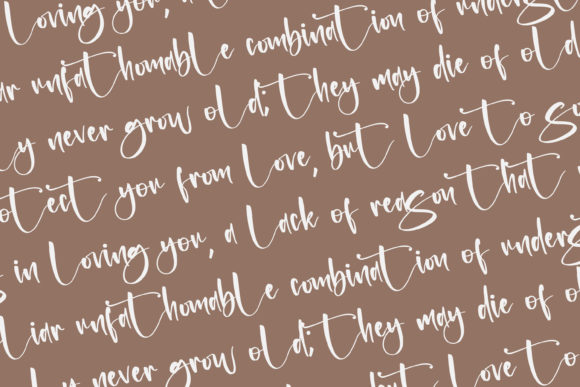 loving you, a
iar unfathomable combination of underst
ly never grow old; they may die of old
otect you from love, but love to su
s in loving you, a lack of reason that
liar unfathomable combination of unders
ly never grow old; they may die of o
but love to